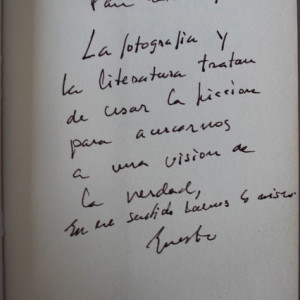 Para
La fotografia y
la literatura tratan
de usar la ficcion
para acercarnos
a una vision de
la verdad,
En ese sentido hacemos lo mismo.
Ernesto